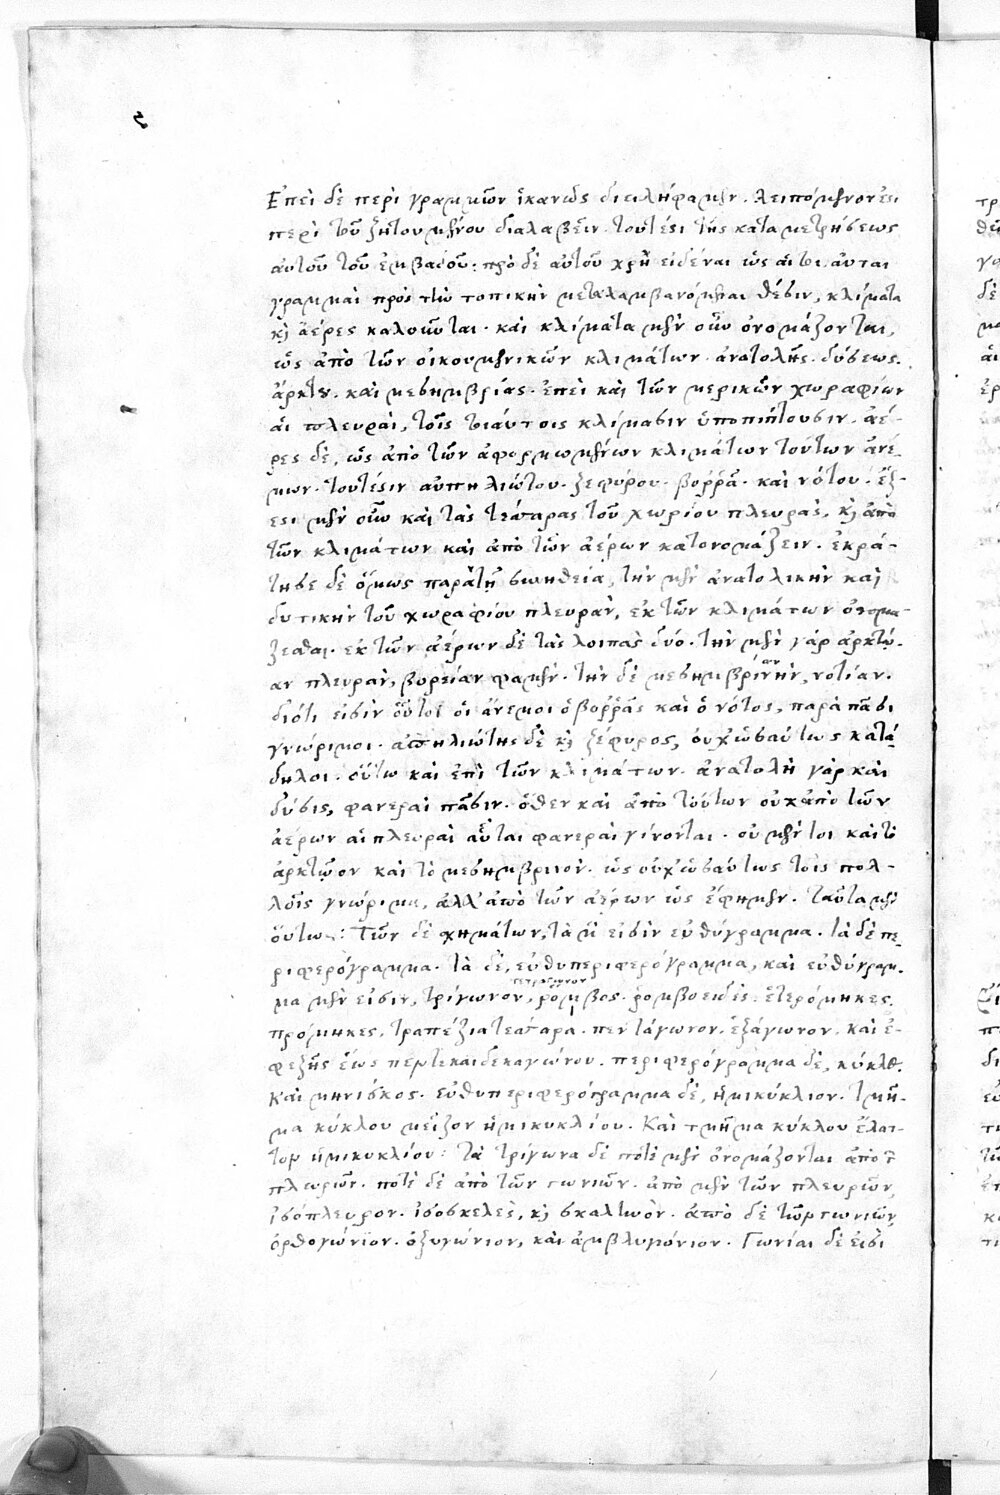 ϛ
Ἐπεὶ δὲ περὶ γραμμῶν ἱκανῶς διειλήφαμεν. λειπόμενόν ἐστι
περὶ τοῦ ζητουμένου διαλαβεῖν. τουτέστι τῆς καταμετρήσεως
αὐτοῦ τοῦ ἐμβαδοῦ: πρὸ δὲ αὐτοῦ χρὴ εἰδέναι ὡς αἱ τοιαῦται
γραμμαὶ πρὸς τὴν τοπικὴν μεταλαμβανόμεναι θέσιν, κλίματα
κὶ ἀέρες καλοῦνται. καὶ κλίματα μὲν οὖν ὀνομάζονται,
ὡς ἀπὸ τῶν οἰκουμενικῶν κλιμάτων. ἀνατολῆς. δύσεως.
ἄρκτου. καὶ μεσημβρίας. ἐπεὶ καὶ τῶν μερικῶν χωραφίων
αἱ πλευραὶ, τοῖς τοιαύτοις κλίμασιν ὑποπίπτουσιν. ἀέ-
ρες δὲ, ὡς ἀπὸ τῶν ἀφορμωμένων κλιμάτων τούτων ἀνέ-
μων. τουτέστιν ἀπηλιώτου. ζεφύρου. βορρᾶ. καὶ νότου. ἔξ-
εστι μὲν οὖν καὶ τὰς τέσσαρας τοῦ χωρίου πλευρὰς, κὶ ἀπὸ
τῶν κλιμάτων καὶ ἀπὸ τῶν ἀέρων κατονομάζειν. ἐκρά-
τησε δὲ ὅμως παρὰ τῇ συνηθείᾳ, τὴν μὲν ἀνατολικὴν καὶ
δυτικὴν τοῦ χωραφίου πλευρὰν, ἐκ τῶν κλιμάτων ὀνομά-
ζεσθαι. ἐκ τῶν ἀέρων δὲ τὰς λοιπὰς δύο. τὴν μὲν γὰρ ἀρκτῴ-
αν πλευρὰν, βορείαν φαμὲν. τὴν δὲ μεσημβρινὴν, νοτίαν.
διότι εἰσὶν οὗτοι οἱ ἄνεμοι ὁ βορρᾶς καὶ ὁ νότος, παρὰ πᾶσι
γνώριμοι. ἀπηλιώτης δὲ κὶ ζέφυρος, οὐχ ὡσαύτως κατά-
δηλοι. οὕτω καὶ ἐπὶ τῶν κλιμάτων. ἀνατολὴ γὰρ καὶ
δύσις, φανεραὶ πᾶσιν. ὅθεν καὶ ἀπὸ τούτων οὐκ ἀπὸ τῶν
ἀέρων αἱ πλευραὶ αὗται φανεραὶ γίνονται. οὐ μέν τοι καὶ τὸ
ἀρκτῷον καὶ τὸ μεσημβρινὸν. ὡς οὐχ ὡσαύτως τοῖς πολ-
λοῖς γνώριμα, ἀλλ' ἀπὸ τῶν ἀέρων ὡς ἔφημεν. ταῦτα μὲν
οὕτως: Τῶν δὲ σχημάτων, τὰ μὲν εἰσὶν εὐθύγραμμα. τὰ δὲ πε-
ριφερόγραμμα. τὰ δὲ, εὐθυπεριφερόγραμμα, καὶ εὐθύγραμ-
τετράγωνον
μα μὲν εἰσιν, τρίγωνον, ῥόμβος. ῥομβοειδὲς. ἑτερόμηκες.
πρόμηκες. τραπέζια τέσσαρα. πεντάγωνον. ἑξάγωνον. καὶ ἐ-
φεξῆς ἕως πεντεκαιδεκαγώνου. περιφερόγραμμα δὲ, κύκλος.
καὶ μηνίσκος. εὐθυπεριφερόγραμμα δὲ, ἡμικύκλιον. τμῆ-
μα κύκλου μεῖζον ἡμικυκλίου. καὶ τμῆμα κύκλου ἔλατ-
τον ἡμικυκλίου: τὰ τρίγωνα δὲ ποτὲ μὲν ὀνομάζονται ἀπὸ τῶν
πλευρῶν. ποτὲ δὲ ἀπὸ τῶν γωνιῶν. ἀπὸ μὲν τῶν πλευρῶν,
ἰσόπλευρον. ἰσοσκελὲς, κὶ σκαληνὸν. ἀπὸ δὲ τῶν γωνιῶν,
ὀρθογώνιον. ὀξυγώνιον, καὶ ἀμβλυγώνιον. Γωνίαι δέ εἰσι